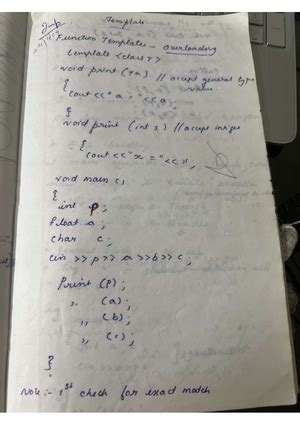 Template
Imp
Function Template - overloading
template <class T>
void print (T a) // accept general type value
{
cout << " a = " << a;
}
void print (int x) // accept integer
{
cout << " x = " << x;
void main ();
{
int p;
float a;
char c;
cin >> p >> a >> b >> c;
Print (P);
,, (a);
,, (b);
,, (c);
}
Note :- 1st check for exact match